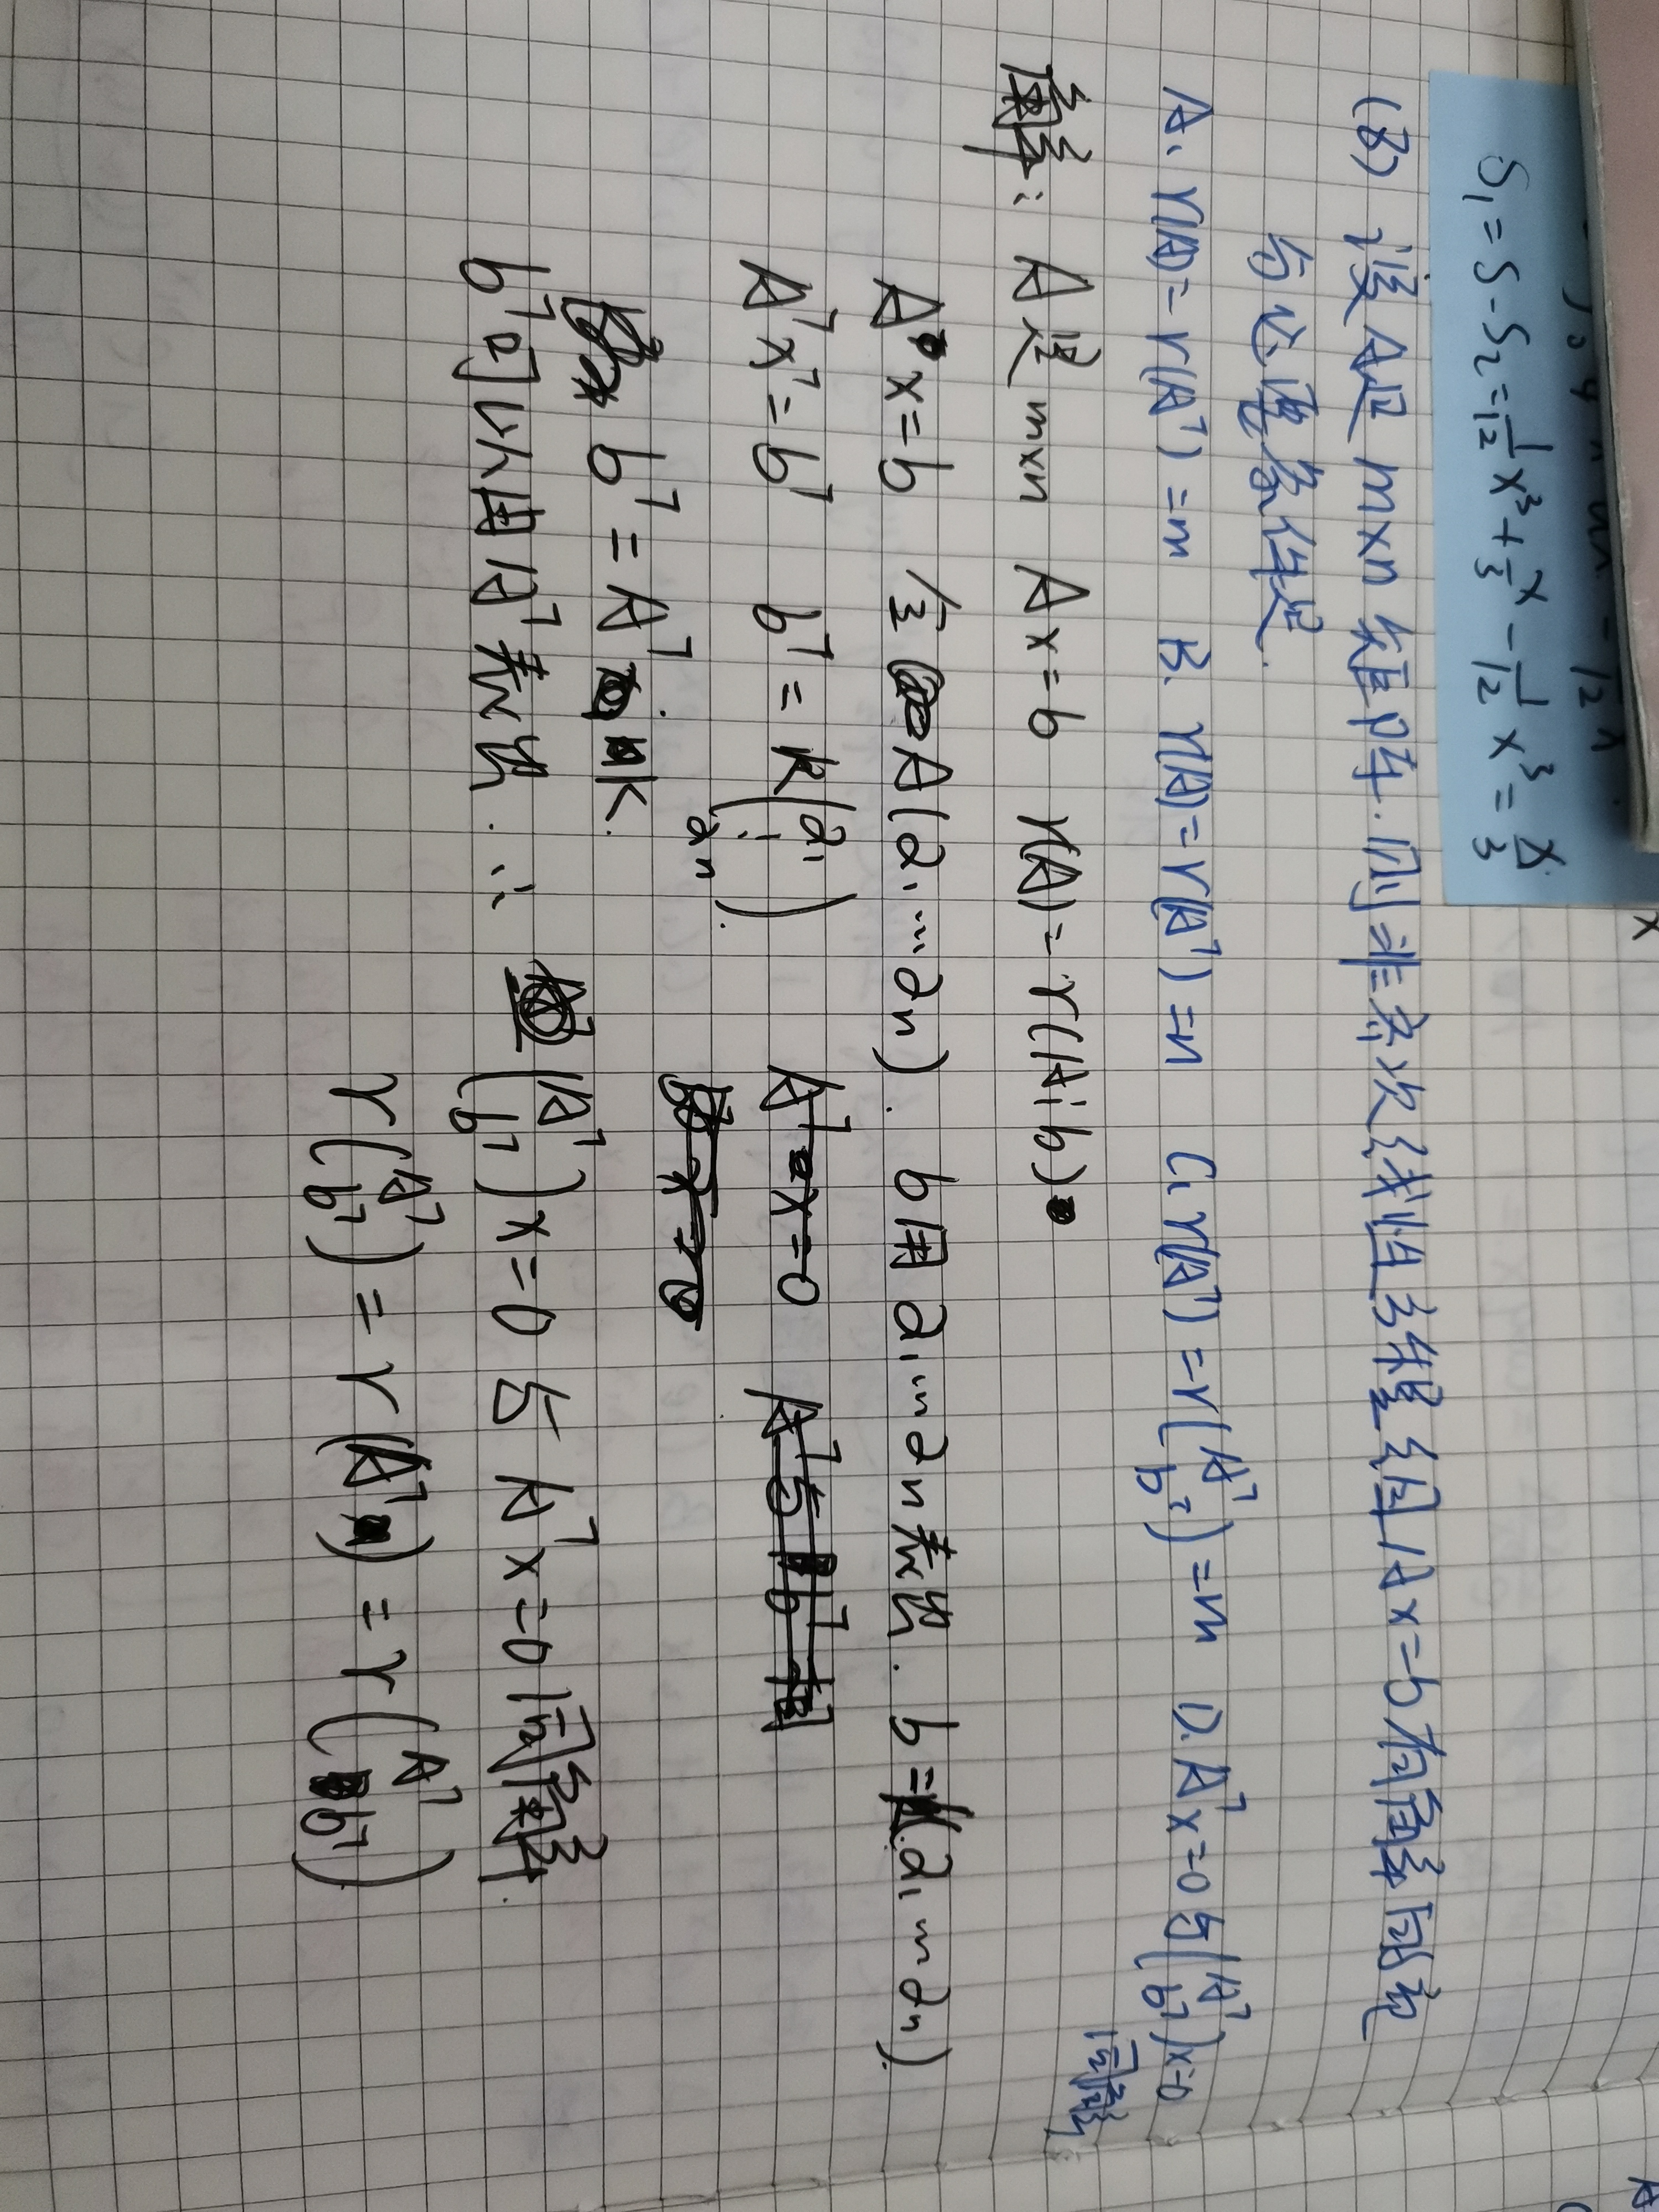 S₁ = S - S₂ = 1/12 x³ + x/3 - 1/12 x³ = x/3
(8) 设 A是 m×n 矩阵. 则非齐次线性方程组 Ax=b有解的充
分必要条件是.
A. r(A) = r(Aᵀ) = m B. r(A) = r(Aᵀ) = n C. r(Aᵀ) = r(Aᵀ bᵀ) = n D. Aᵀx=0与(Aᵀ bᵀ)x=0
同解
解: A是 m×n Ax=b r(A) = r(A⋮b)
A x=b A(a₁ … aₙ). b用 a₁ … aₙ表出. b=k(a₁ … aₙ).
Aᵀxᵀ=bᵀ bᵀ = k(a₁ ⋮ aₙ).
bᵀ = Aᵀ k.
bᵀ可以用Aᵀ表出. ∴ (Aᵀ bᵀ)x=0 与 Aᵀx=0同解.
r(Aᵀ bᵀ) = r(Aᵀ) = r(Aᵀ bᵀ)